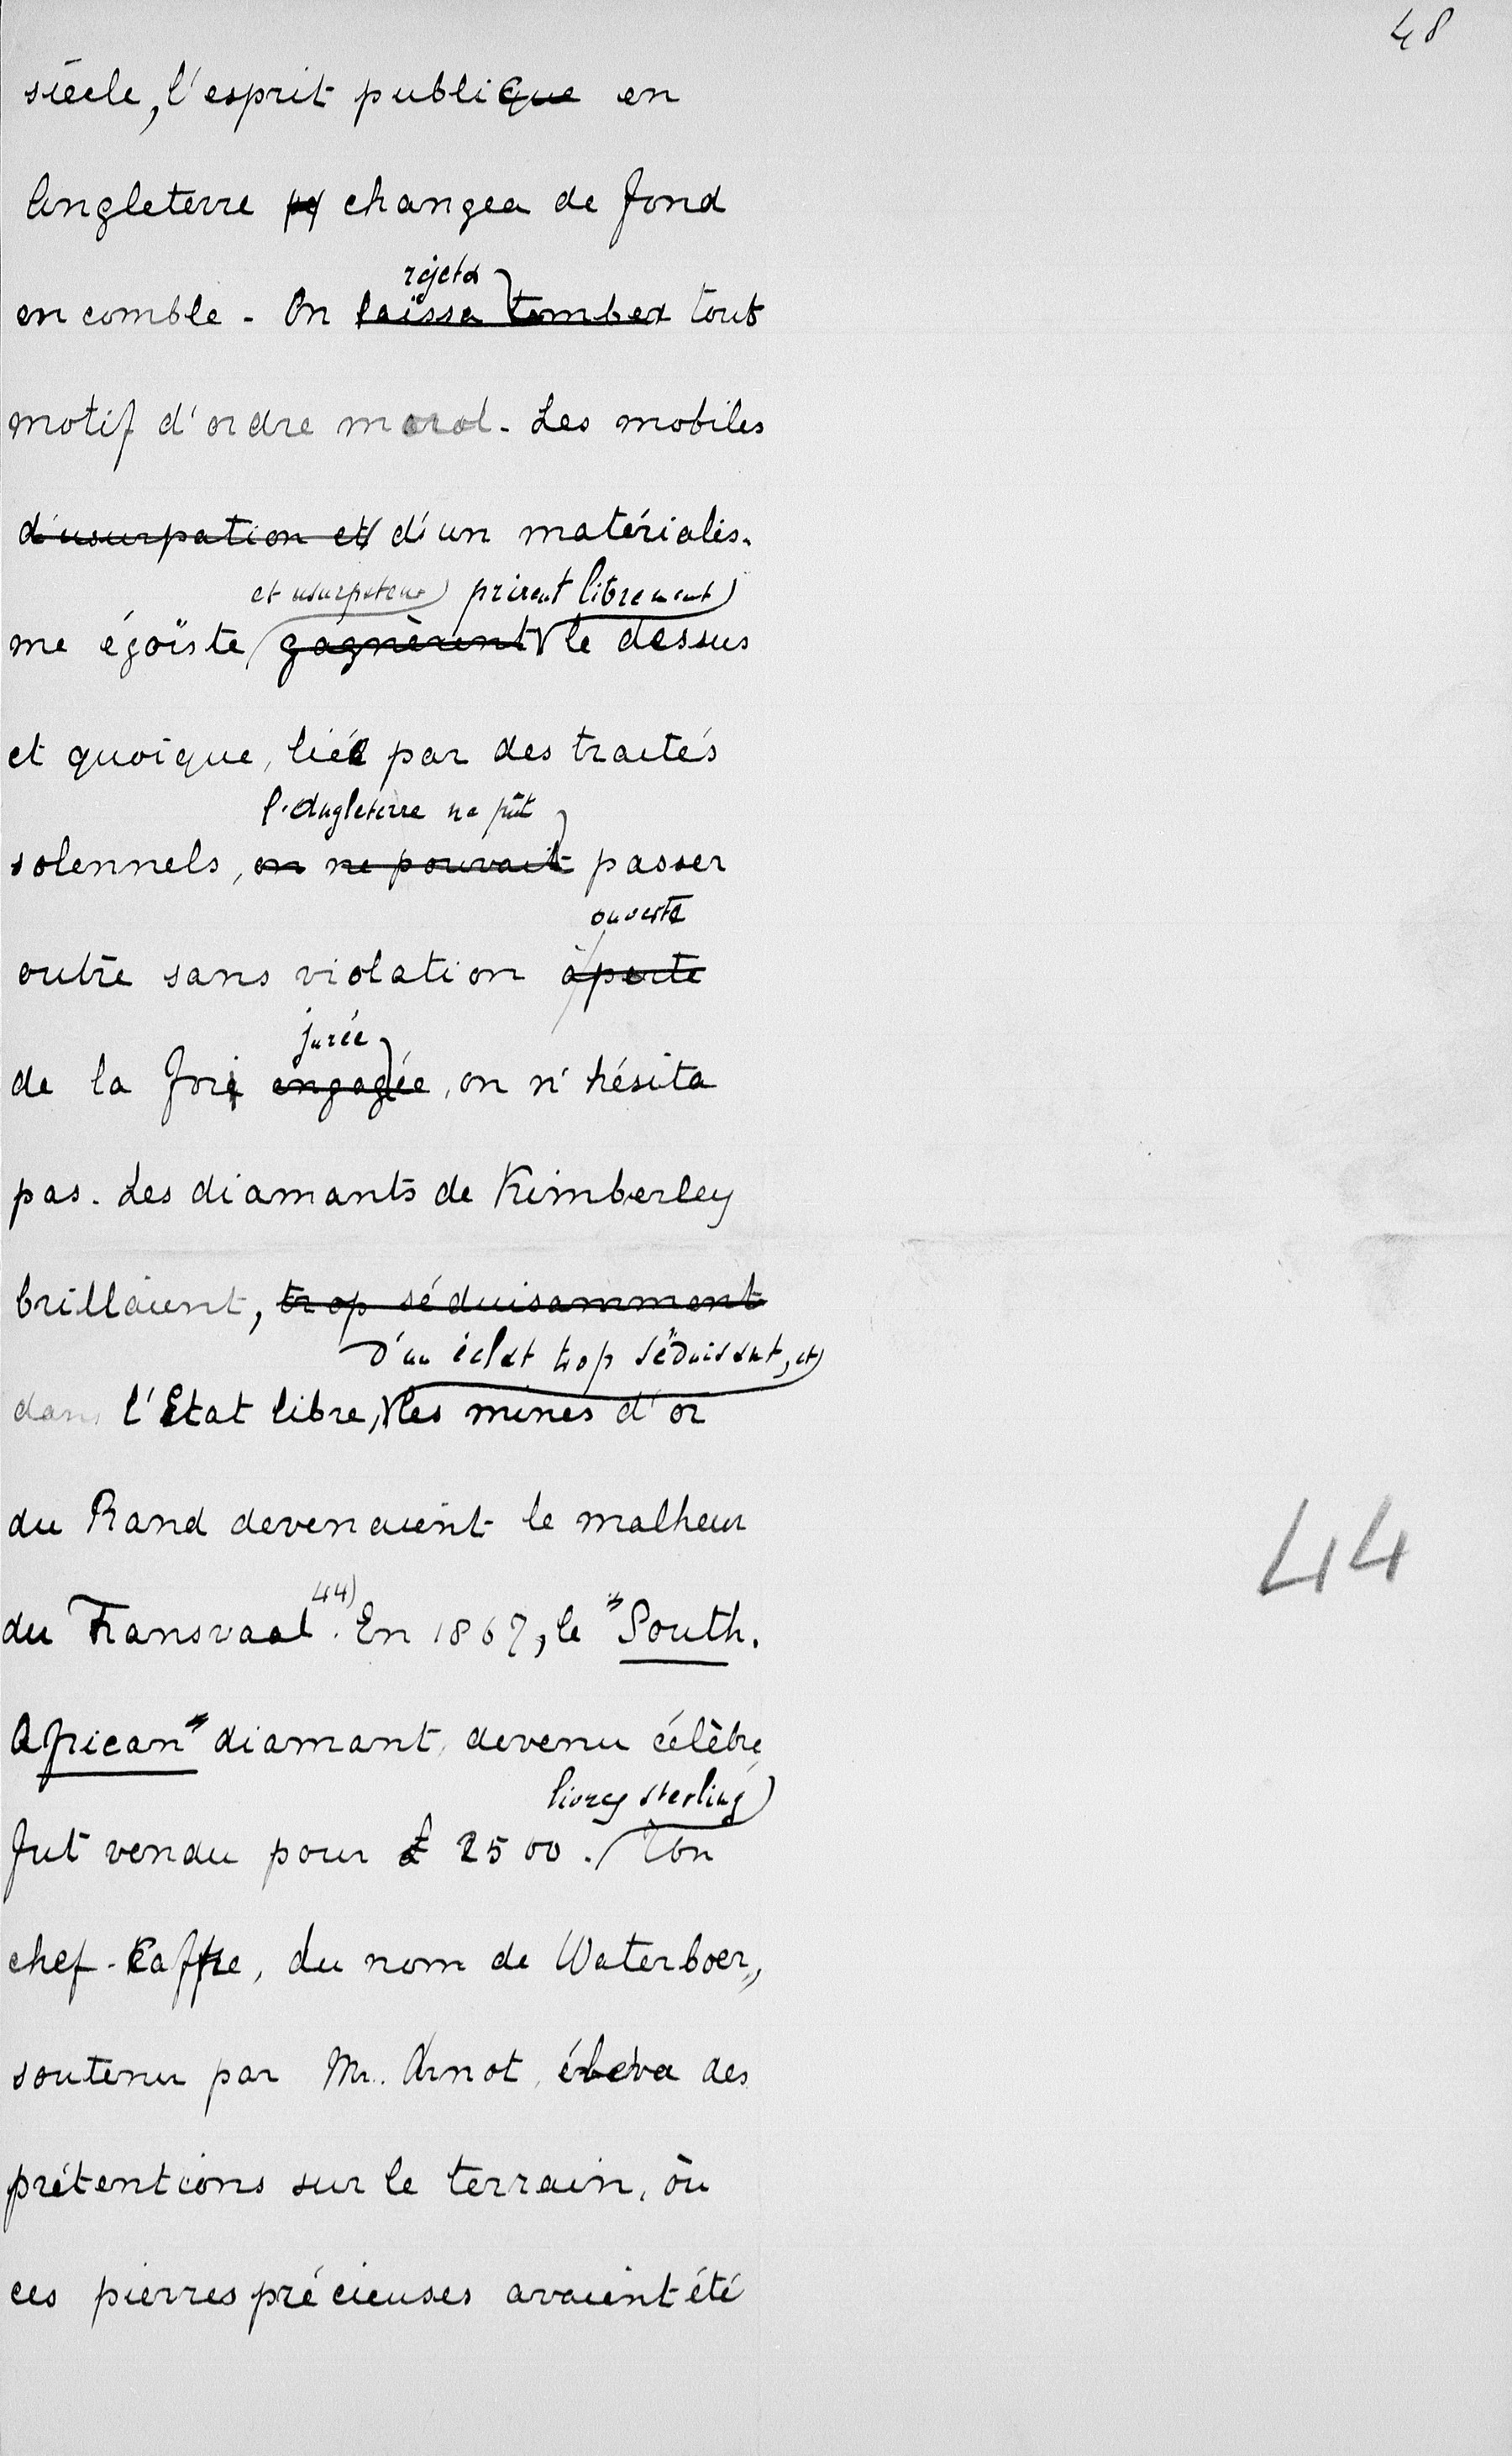 48
siècle, l'esprit public en
Angleterre changea de fond
rejeta
en comble. On laissa tomber tout
motif d'ordre moral. Les mobiles
d'usurpation et d'un matérialis-
et usurpateur prirent librement
me égoïste gagnèrent le dessus
et quoique, liée par des traités
l'Angleterre ne pût
solennels, on ne pouvait passer
ouverte
outre sans violation aperte
jurée
de la foi engagée, on n'hésita
pas. Les diamants de Kimberley
brillaient, trop séduisamment
d'un éclat trop séduisant, et
dans l'Etat libre, les mines d'or
du Rand devenaient le malheur
44
du Transvaal 44). En 1867, le "South.
African" diamant, devenu célèbre,
livres sterling
fut vendu pour £ 2500. Un
chef-Caffre, du nom de Waterboer,
soutenu par Mr. Arnot, éleva des
prétentions sur le terrain, où
ces pierres précieuses avaient été